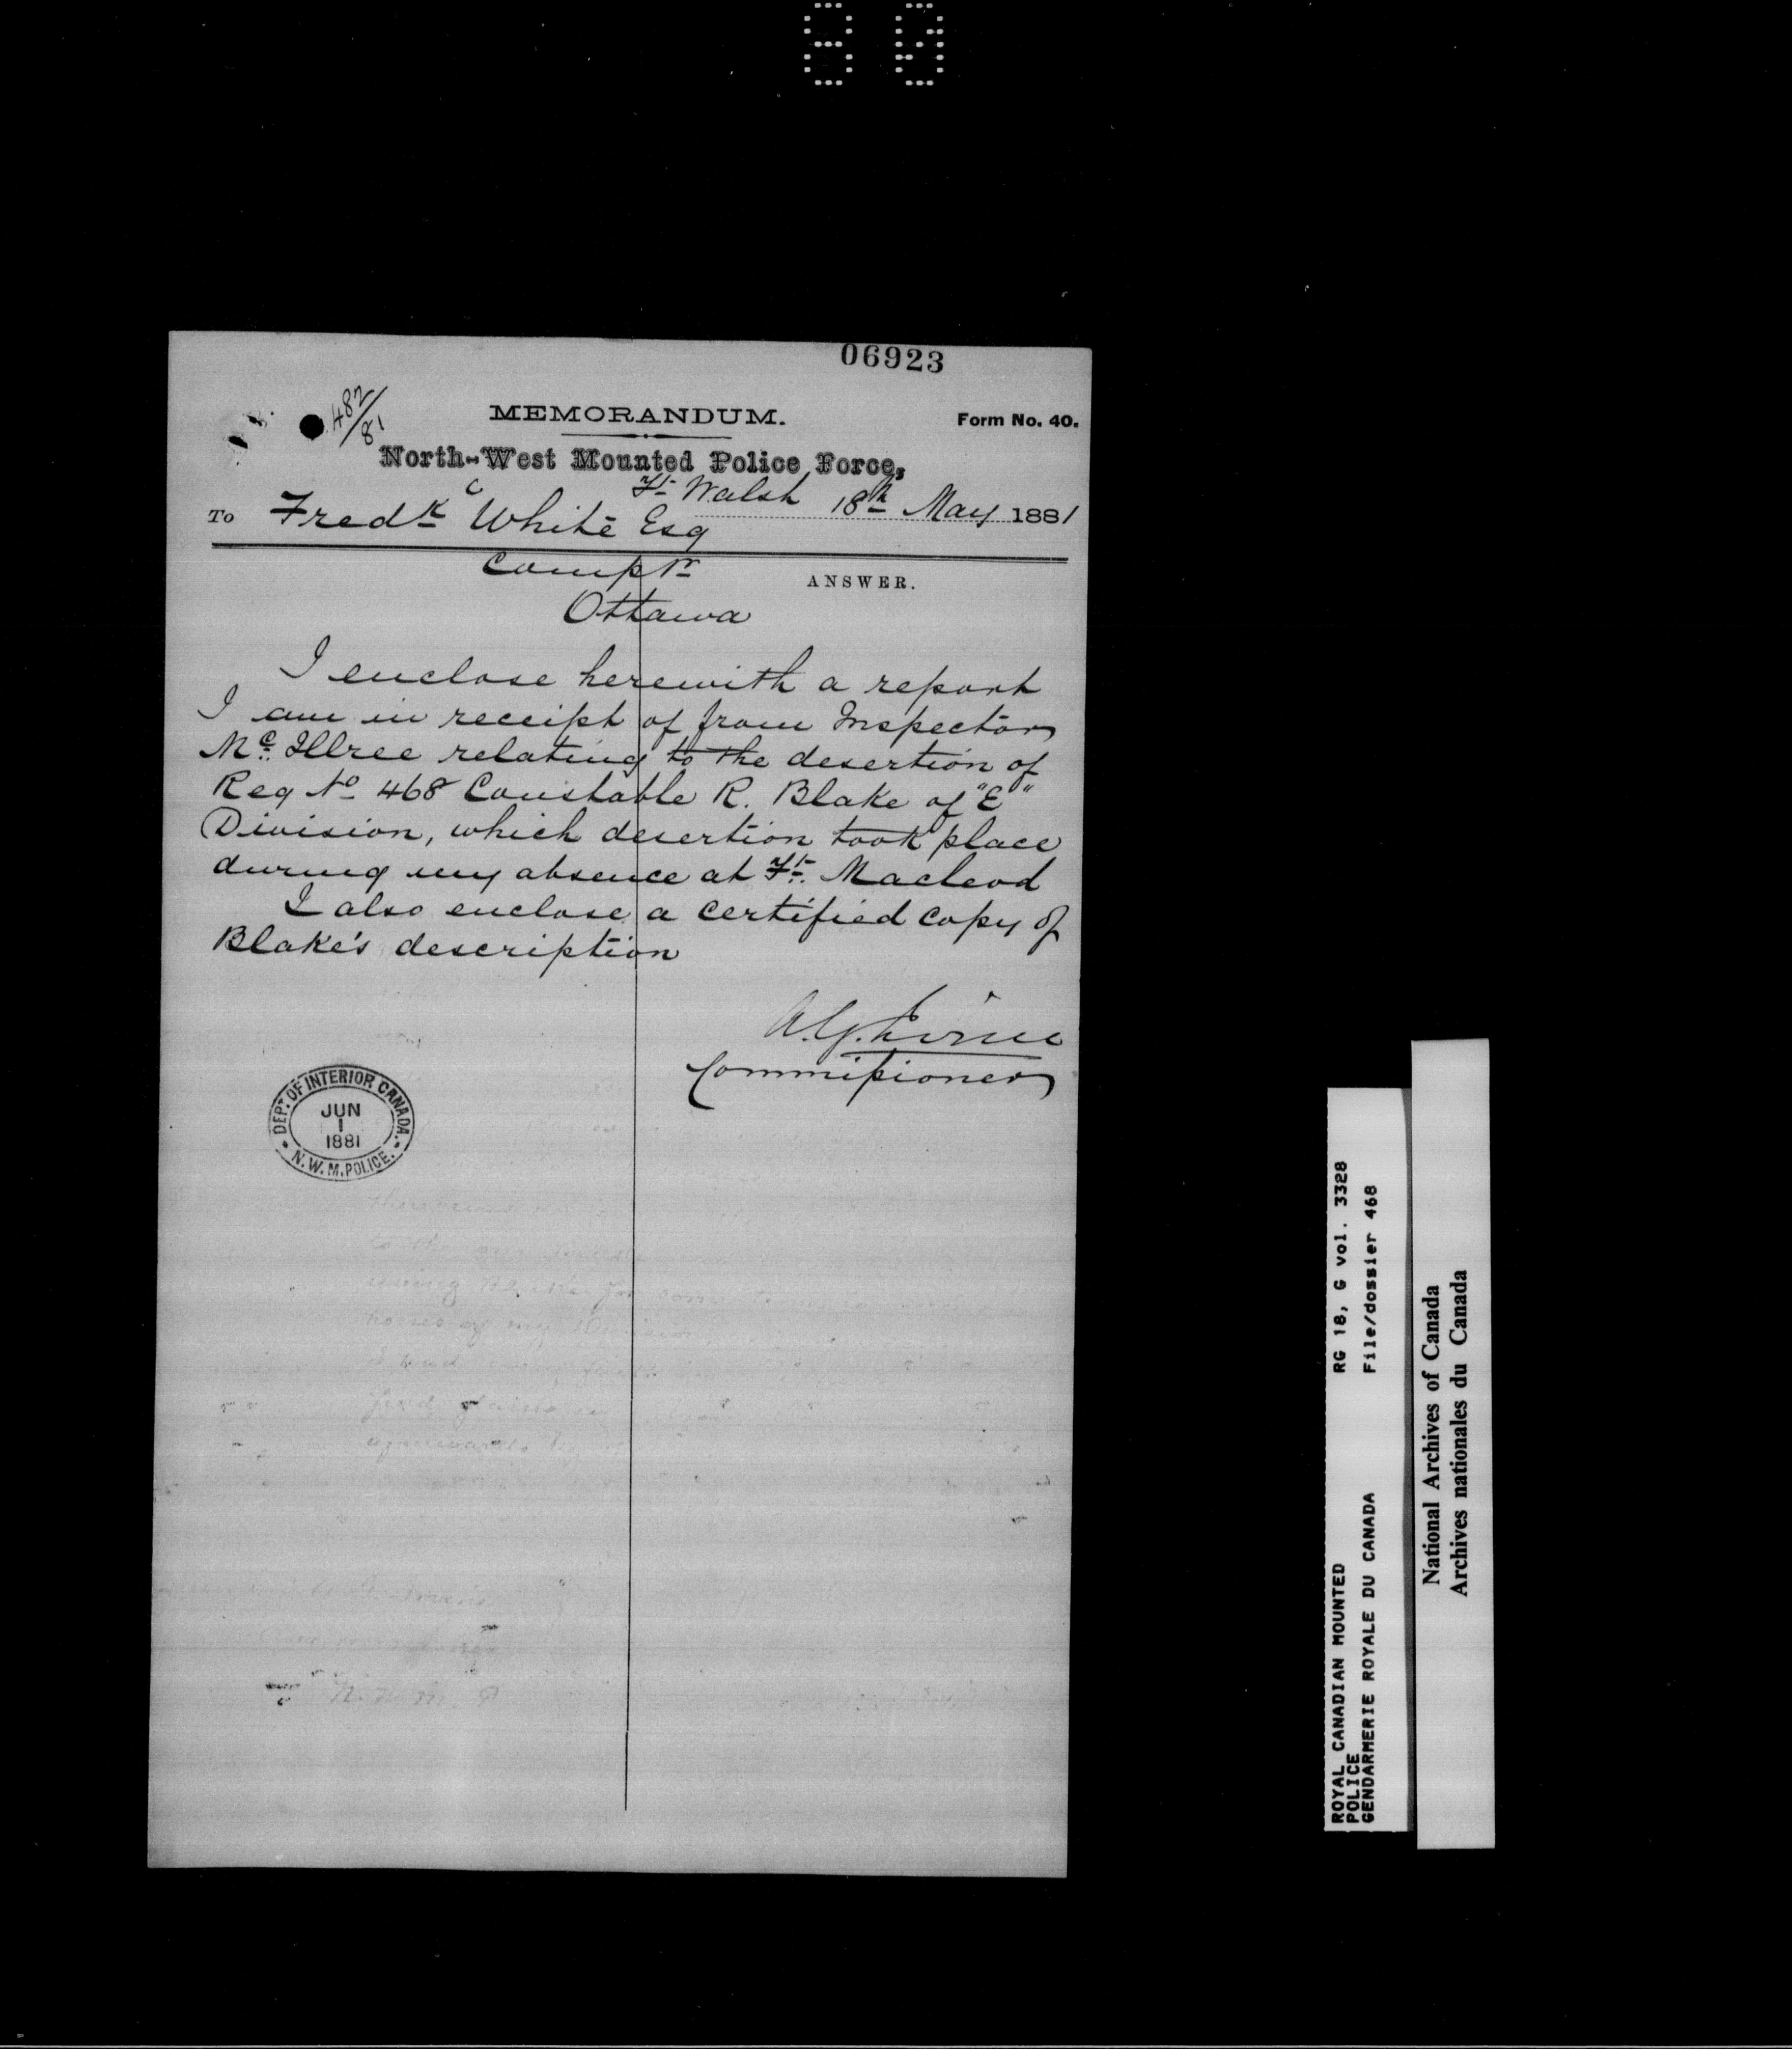 80
06923
482/81
MEMORANDUM.
Form No. 40.
North-West Mounted Police Force,
Ft Walsh 18th May 1881
To Fredk White Esq
Comptr
ANSWER.
Ottawa
I enclose herewith a report
I am in receipt of from Inspector
Mc Illree relating to the desertion of
Reg No 468 Constable R. Blake of "E"
Division, which desertion took place
during my absence at Ft. Macleod
I also enclose a certified copy of
Blake's description
A.G. Irvine
Commissioner
DEPT. OF INTERIOR CANADA.
JUN
1
1881
N.W.M. POLICE.
to the
using Blake for some
horses of my Division
N.W.M.P
ROYAL CANADIAN MOUNTED RG 18, G vol. 3328
POLICE
GENDARMERIE ROYALE DU CANADA File/dossier 468
National Archives of Canada
Archives nationales du Canada